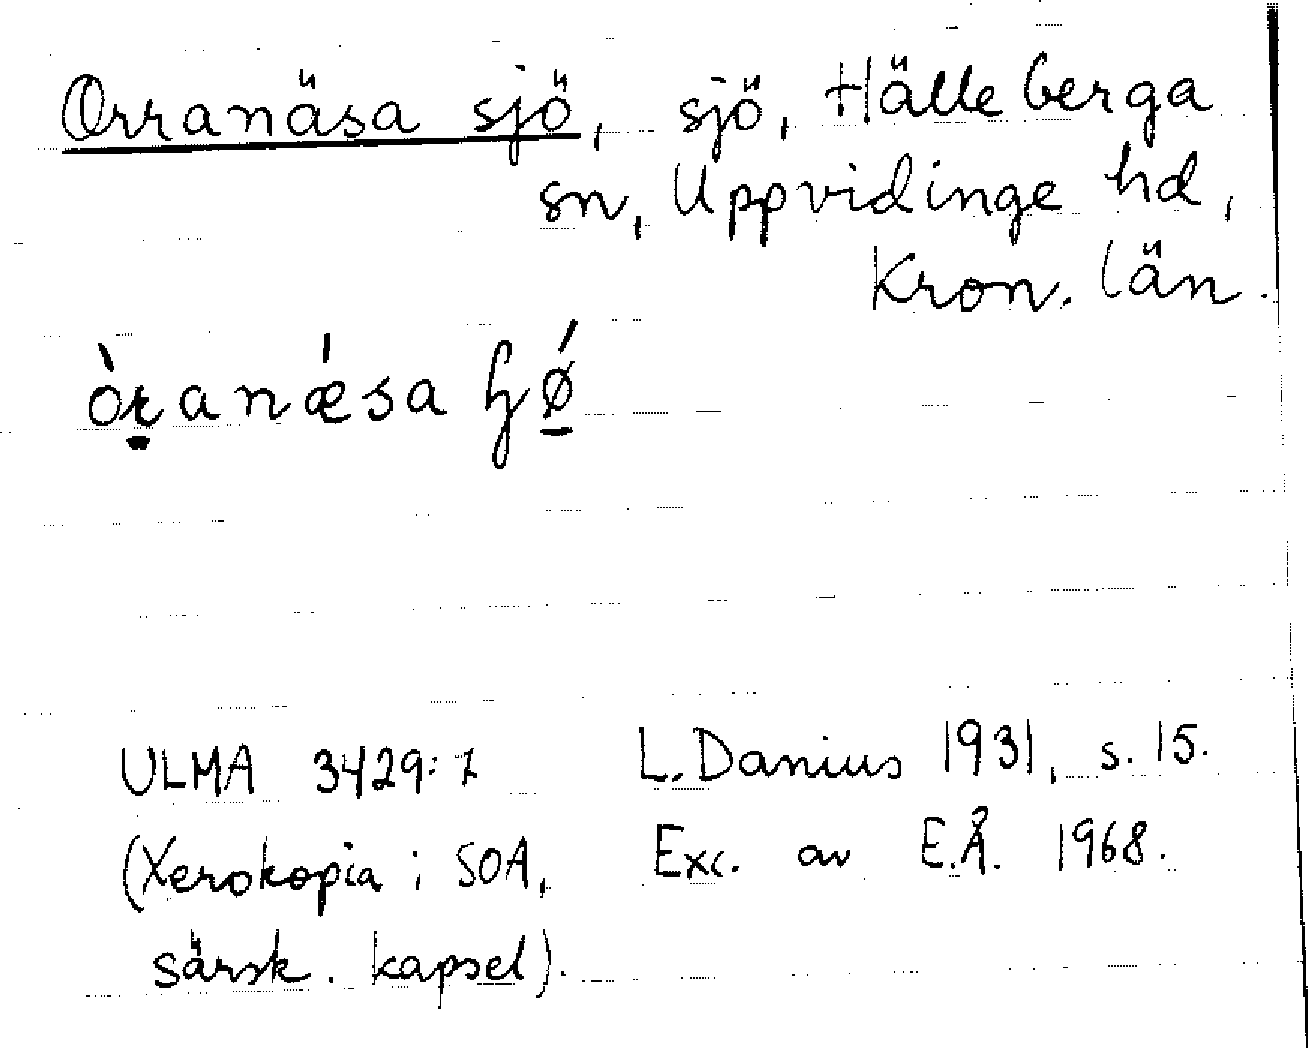 Orranäsa sjö, sjö, Hälleberga
sn, Uppvidinge hd,
Kron. län.
òranǽsa ɧǿ
ULMA 3429:7 L. Danius 1931, s. 15.
(Xerokopia i SOA, Exc. av E.Å. 1968.
särsk. kapsel).